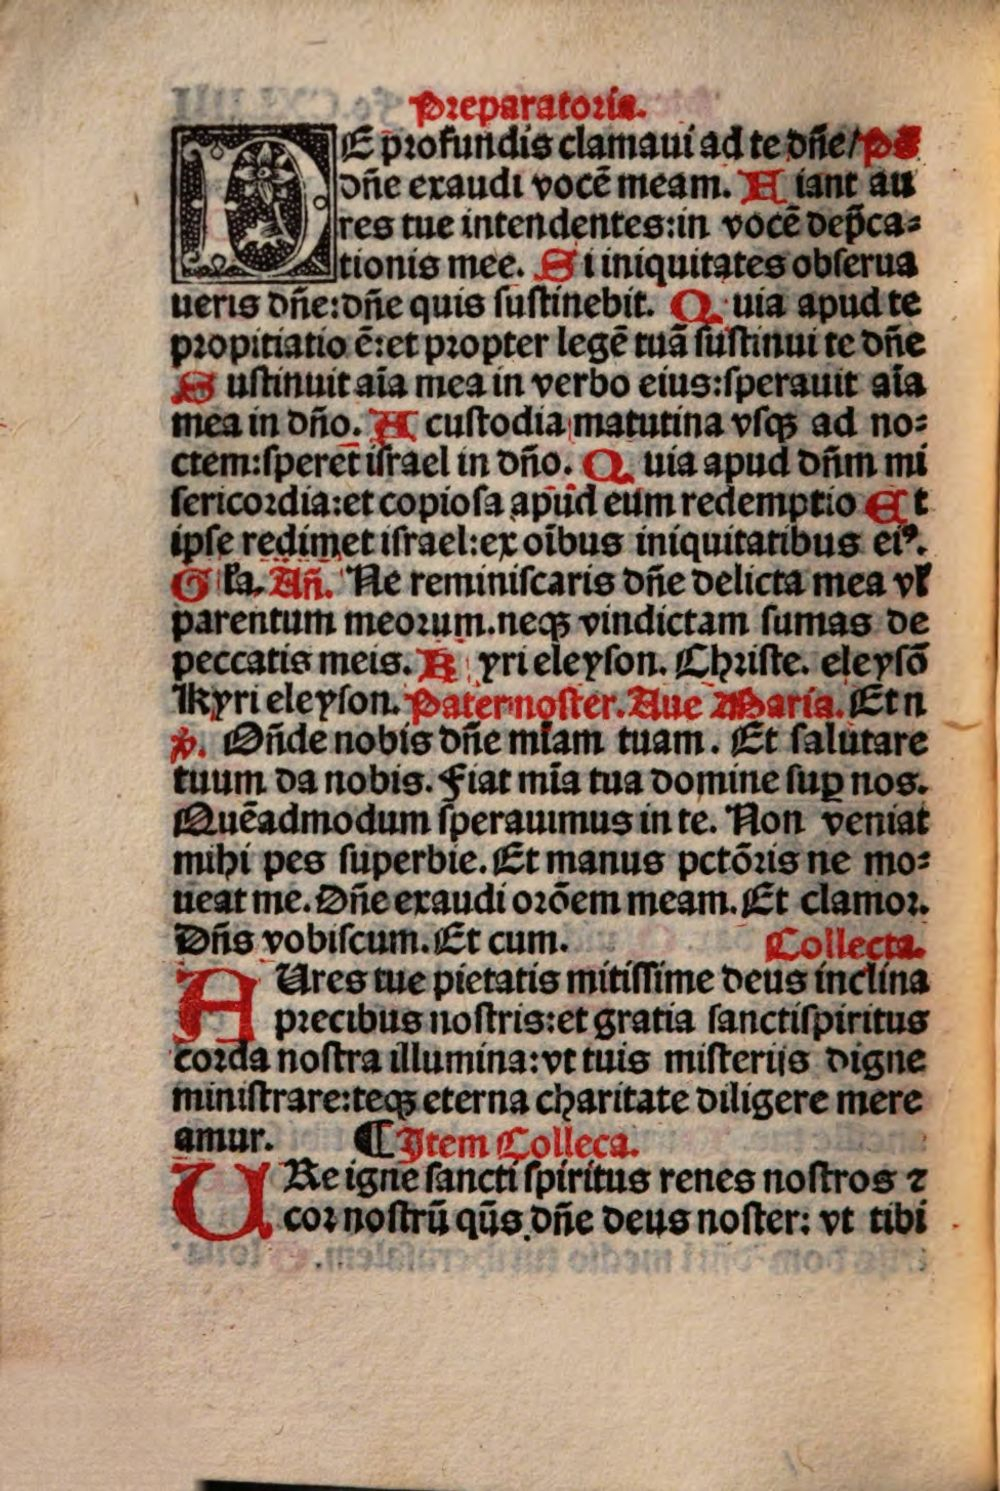 Preparatoria.
DE profundis clamaui ad te dñe/ ps
dñe exaudi vocē meam. Fiant au
res tue intendentes:in vocē dep̄ca⸗
tionis mee. Si iniquitates obſerua
ueris dñe:dñe quis ſuſtinebit. Quia apud te
propitiatio ē:et propter legē tuā ſuſtinui te dñe
Suſtinuit aīa mea in verbo eius:ſperauit aīa
mea in dño. A cuſtodia matutina vſqꝫ ad no⸗
ctem:ſperet iſrael in dño. Quia apud dñm mi
ſericordia:et copioſa apud eum redemptio Et
ipſe redimet iſrael:ex oībus iniquitatibus eiꝰ.
Gľa. Añ. Ne reminiſcaris dñe delicta mea vľ
parentum meorum.neqꝫ vindictam ſumas de
peccatis meis. Kyri eleyſon. Chriſte. eleyſō
Kyri eleyſon. Pater noſter. Aue Maria. Et n
℣. Oñde nobis dñe mīam tuam. Et ſalutare
tuum da nobis. Fiat mīa tua domine ſuꝑ nos.
Quēadmodum ſperauimus in te. Non veniat
mihi pes ſuperbie. Et manus pctōris ne mo⸗
ueat me. Dñe exaudi orōem meam. Et clamor.
Dñs vobiſcum. Et cum. Collecta.
AUres tue pietatis mitiſſime deus inclina
precibus noſtris:et gratia ſanctiſpiritus
corda noſtra illumina:vt tuis miſterijs digne
miniſtrare:teqꝫ eterna charitate diligere mere
amur. ¶ Item Colleca.
URe igne ſancti ſpiritus renes noſtros ⁊
cor noſtrū qūs dñe deus noſter: vt tibi